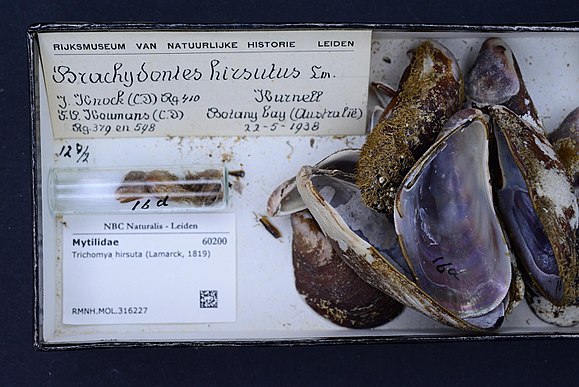 RIJKSMUSEUM VAN NATUURLIJKE HISTORIE LEIDEN
Brachydontes hirsutus Lm.
Kurnell
Botany bay (Australië)
Rg. 379 en 598 22-5-1938
12 0/2
16d
16d
NBC Naturalis - Leiden
Mytilidae 60200
Trichomya hirsuta (Lamarck, 1819)
RMNH.MOL.316227